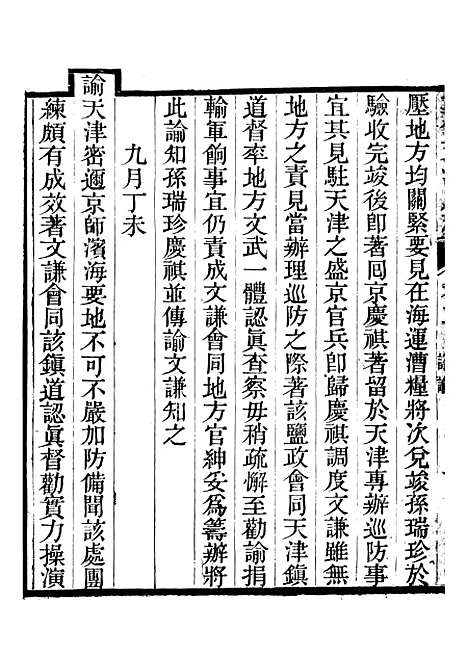 壓地方均關緊要見在海運漕糧將次兌竣孫瑞珍於
驗收完竣後卽著囘京慶祺著留於天津專辦巡防事
宜其見駐天津之盛京官兵卽歸慶祺調度文謙雖無
地方之責見當辦理巡防之際著該鹽政會同天津鎮
道督率地方文武一體認眞查察毋稍疏懈至勸諭捐
輸軍餉事宜仍責成文謙會同地方官紳妥爲籌辦將
此諭知孫瑞珍慶祺並傳諭文謙知之
九月丁未
諭天津密邇京師濱海要地不可不嚴加防備聞該處團
練頗有成效著文謙會同該鎮道認眞督勸實力操演